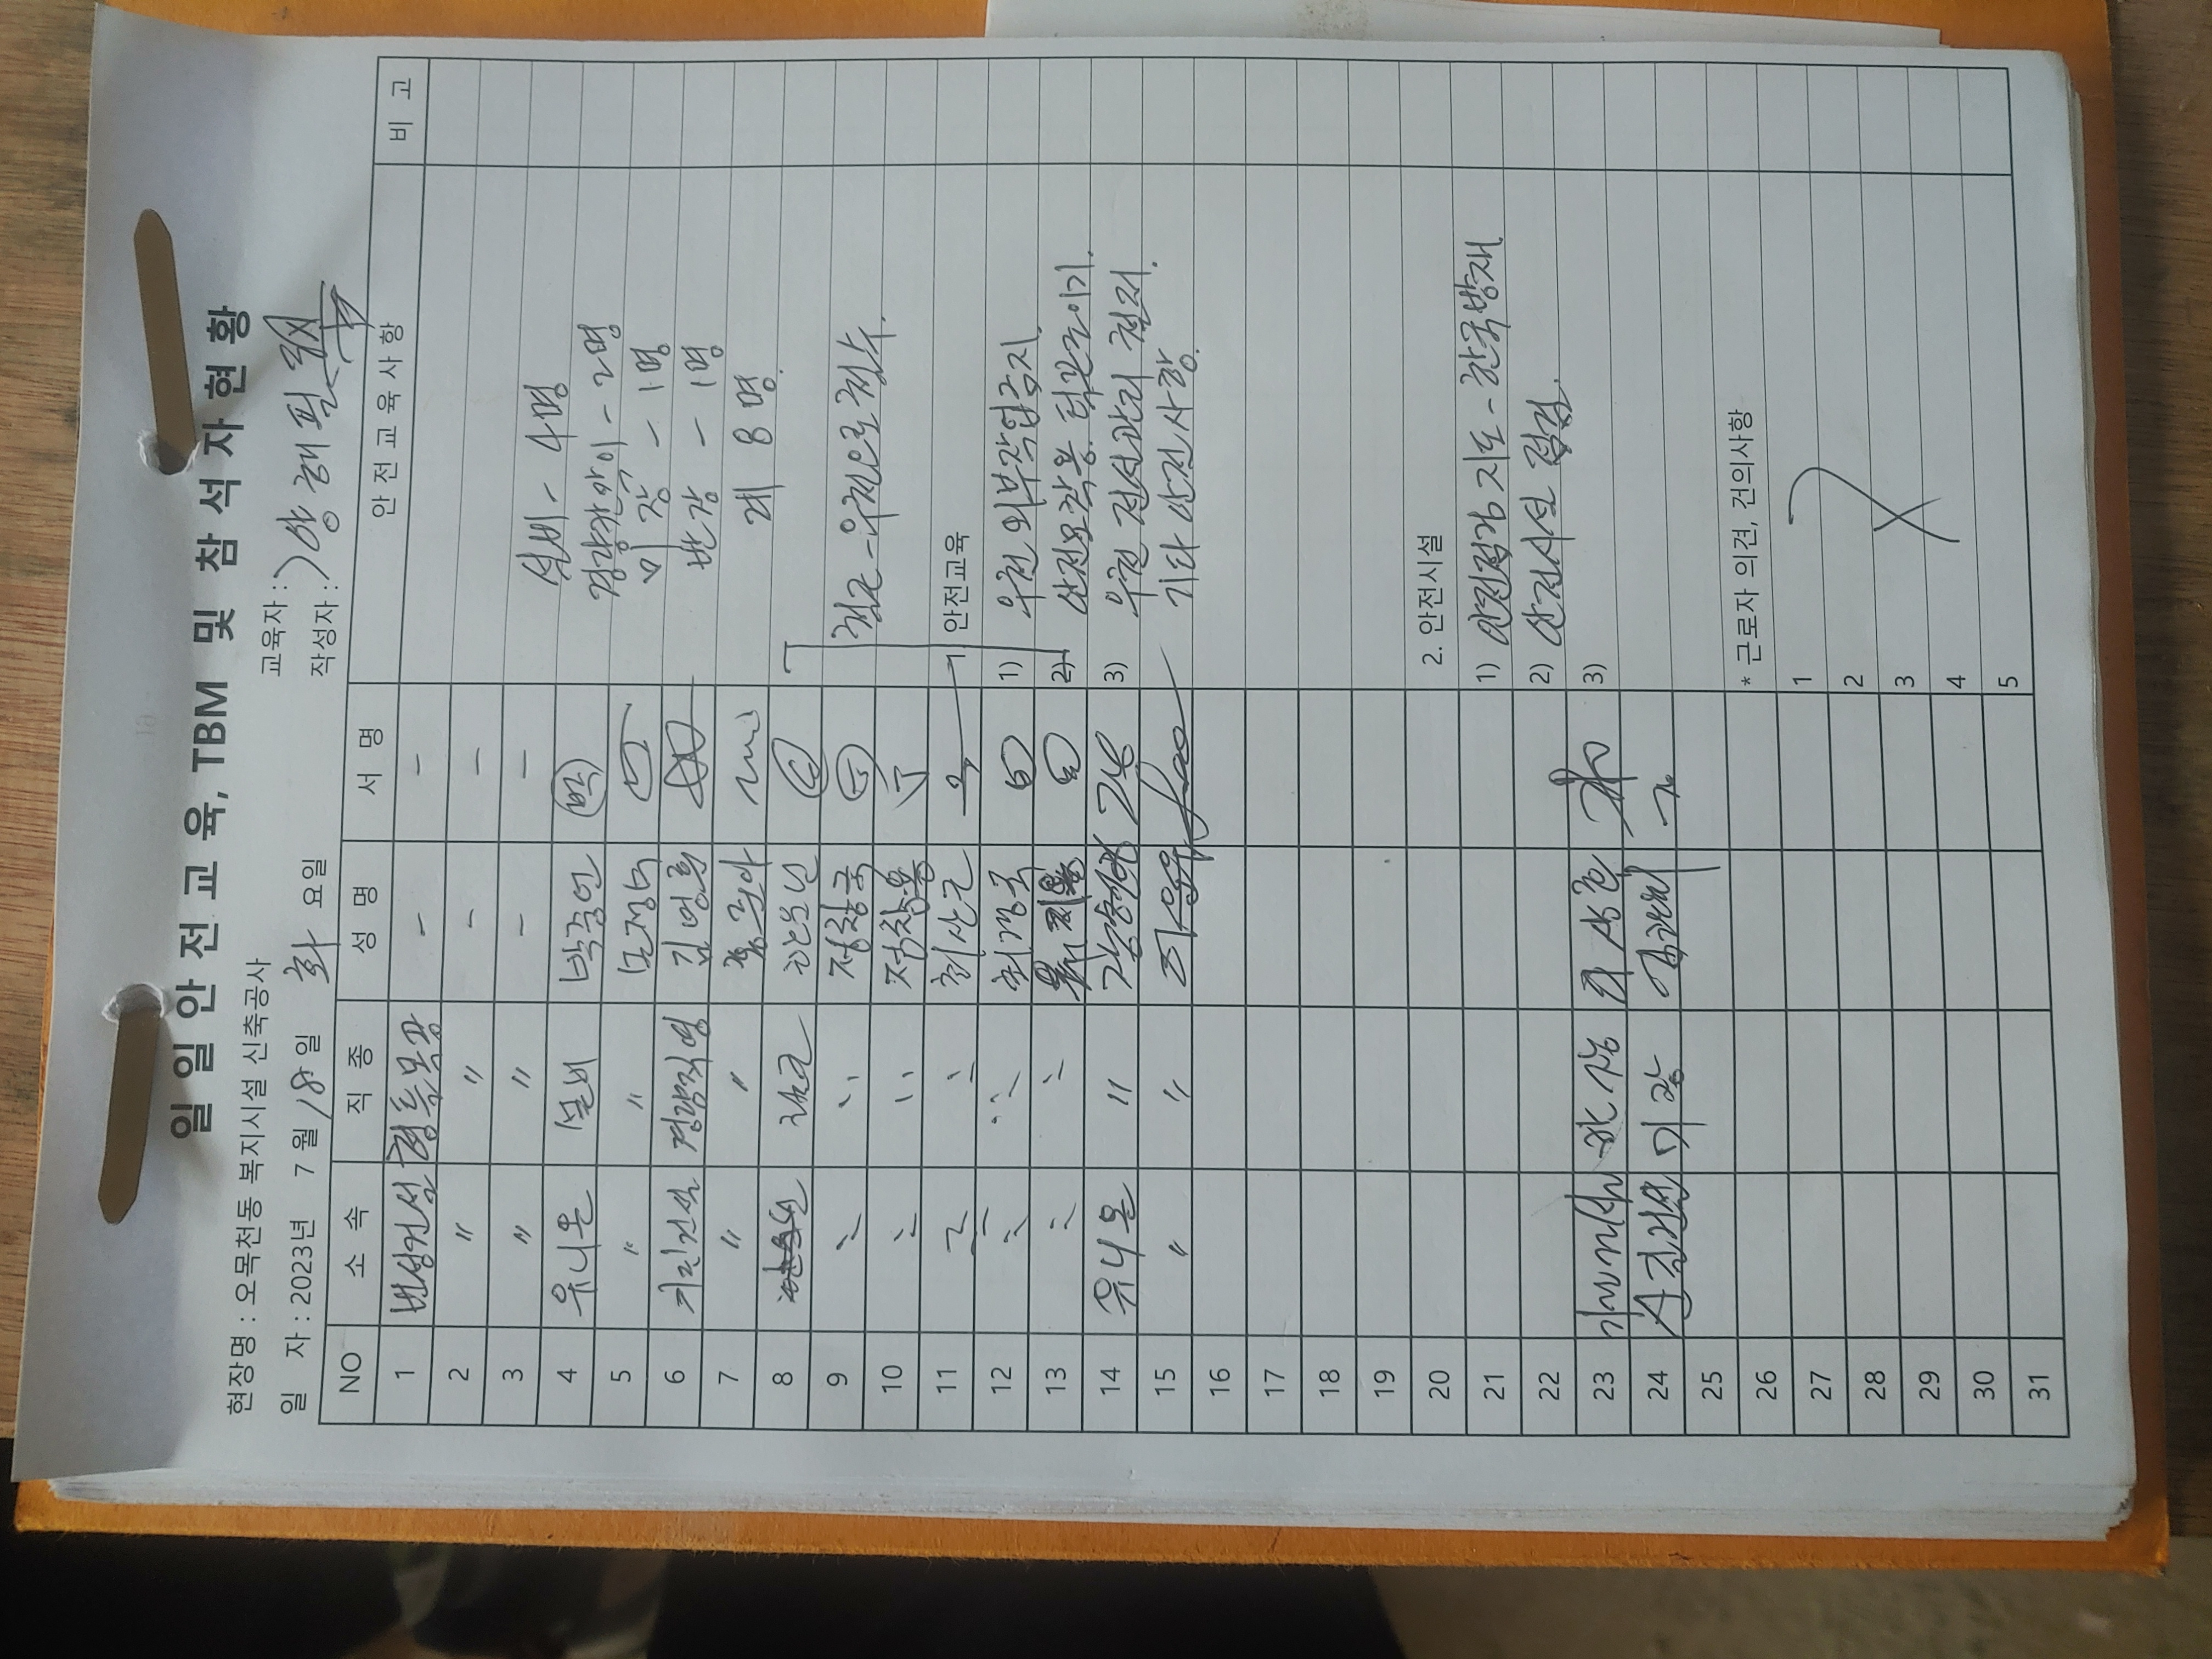 일 일 안 전 교 육, TBM 및 참 석 자 현 황
현장명 : 오목천동 복지시설 신축공사
교육자 :
일 자 : 2023년 7 월 18 일 화 요일
작성자 : 양해필
NO 소 속 직 종 성 명 서 명 안 전 교 육 사 항 비 고
1 번성건설 형틀목공 - -
2 〃 〃 - -
3 〃 〃 - -
설비 - 4명
4 유니온 설비 박중언
경량칸막이 - 2명
5 〃 〃
미장 - 1명
6 기린건설 경량직영
반장 - 1명
7 〃 〃
계 8명
8 철근
9 정창국
철근 - 우천으로 철수.
10 정창용
11 최산근
1. 안전교육
12 최경국
1) 우천 외부작업금지.
13
2) 안전모착용. 턱끈조이기.
14 유니온 〃
3) 우천 전선관리 철저.
15 〃 〃
기타 안전사항.
16
17
18
19
20
2. 안전시설
21
1) 안전점검 지도 - 한국방재
22
2) 안전시설 점검.
23 반장
3)
24 미장
25
* 근로자 의견, 건의사항
26
27
1
28
2
29
3
30
4
31
5